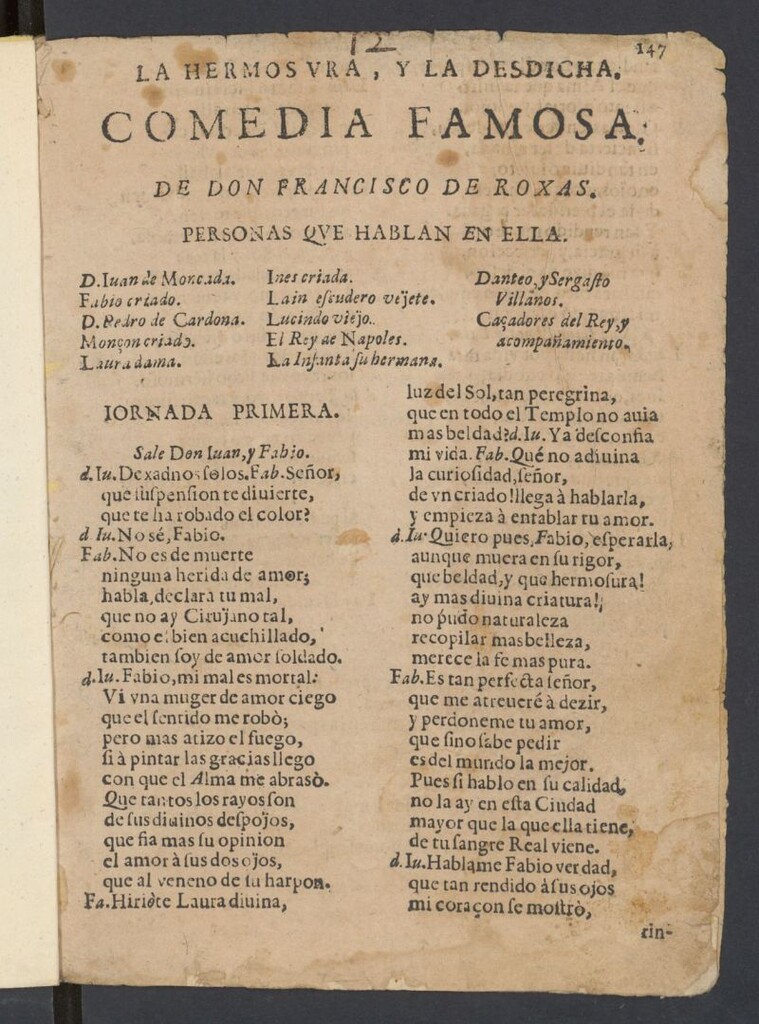 12
147
LA HERMOSVRA, Y LA DESDICHA.
COMEDIA FAMOSA.
DE DON FRANCISCO DE ROXAS.
PERSONAS QVE HABLAN EN ELLA.
D. Iuan de Moncada.
Fabio criado.
D. Pedro de Cardona.
Monçon criado.
Laura dama.
Ines criada.
Lain eſcudero vejete.
Lucindo viejo.
El Rey de Napoles.
La Infanta ſu hermana.
Danteo, y Sergaſto
Villanos.
Caçadores del Rey, y
acompañamiento.
IORNADA PRIMERA.
Sale Don Iuan, y Fabio.
d. Iu. Dexadnos ſolos. Fab. Señor,
que ſuſpenſion te diuierte,
que te ha robado el color?
d Iu. No sé, Fabio.
Fab. No es de muerte
ninguna herida de amor;
habla, declara tu mal,
que no ay Cirujano tal,
como el bien acuchillado,
tambien ſoy de amor ſoldado.
d. Iu. Fabio, mi mal es mortal:
Vi vna muger de amor ciego
que el ſentido me robò;
pero mas atizo el fuego,
ſi à pintar las gracias llego
con que el Alma me abrasò.
Que tantos los rayos ſon
de ſus diuinos deſpojos,
que fia mas ſu opinion
el amor à ſus dos ojos,
que al veneno de ſu harpon.
Fa. Hiriòte Laura diuina,
luz del Sol, tan peregrina,
que en todo el Templo no auia
mas beldad? d. Iu. Ya deſconfia
mi vida. Fab. Qué no adiuina
la curioſidad, ſeñor,
de vn criado! llega à hablarla,
y empieza à entablar tu amor.
d. Iu. Quiero pues, Fabio, eſperarla,
aunque muera en ſu rigor,
que beldad, y que hermoſura!
ay mas diuina criatura!
no pudo naturaleza
recopilar mas belleza,
merece la fe mas pura.
Fab. Es tan perfecta ſeñor,
que me atreueré à dezir,
y perdoneme tu amor,
que ſino ſabe pedir
es del mundo la mejor.
Pues ſi hablo en ſu calidad,
no la ay en eſta Ciudad
mayor que la que ella tiene,
de tu ſangre Real viene.
d. Iu. Hablame Fabio verdad,
que tan rendido à ſus ojos
mi coraçon ſe moſtrò,
rin-